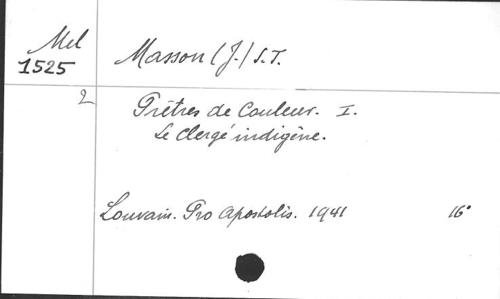 Mel
1525
2
Masson (J.) S.J.
Prêtres de Couleur. I.
Le Clergé indigène.
Louvain. Pro Apostolis. 1941 16°